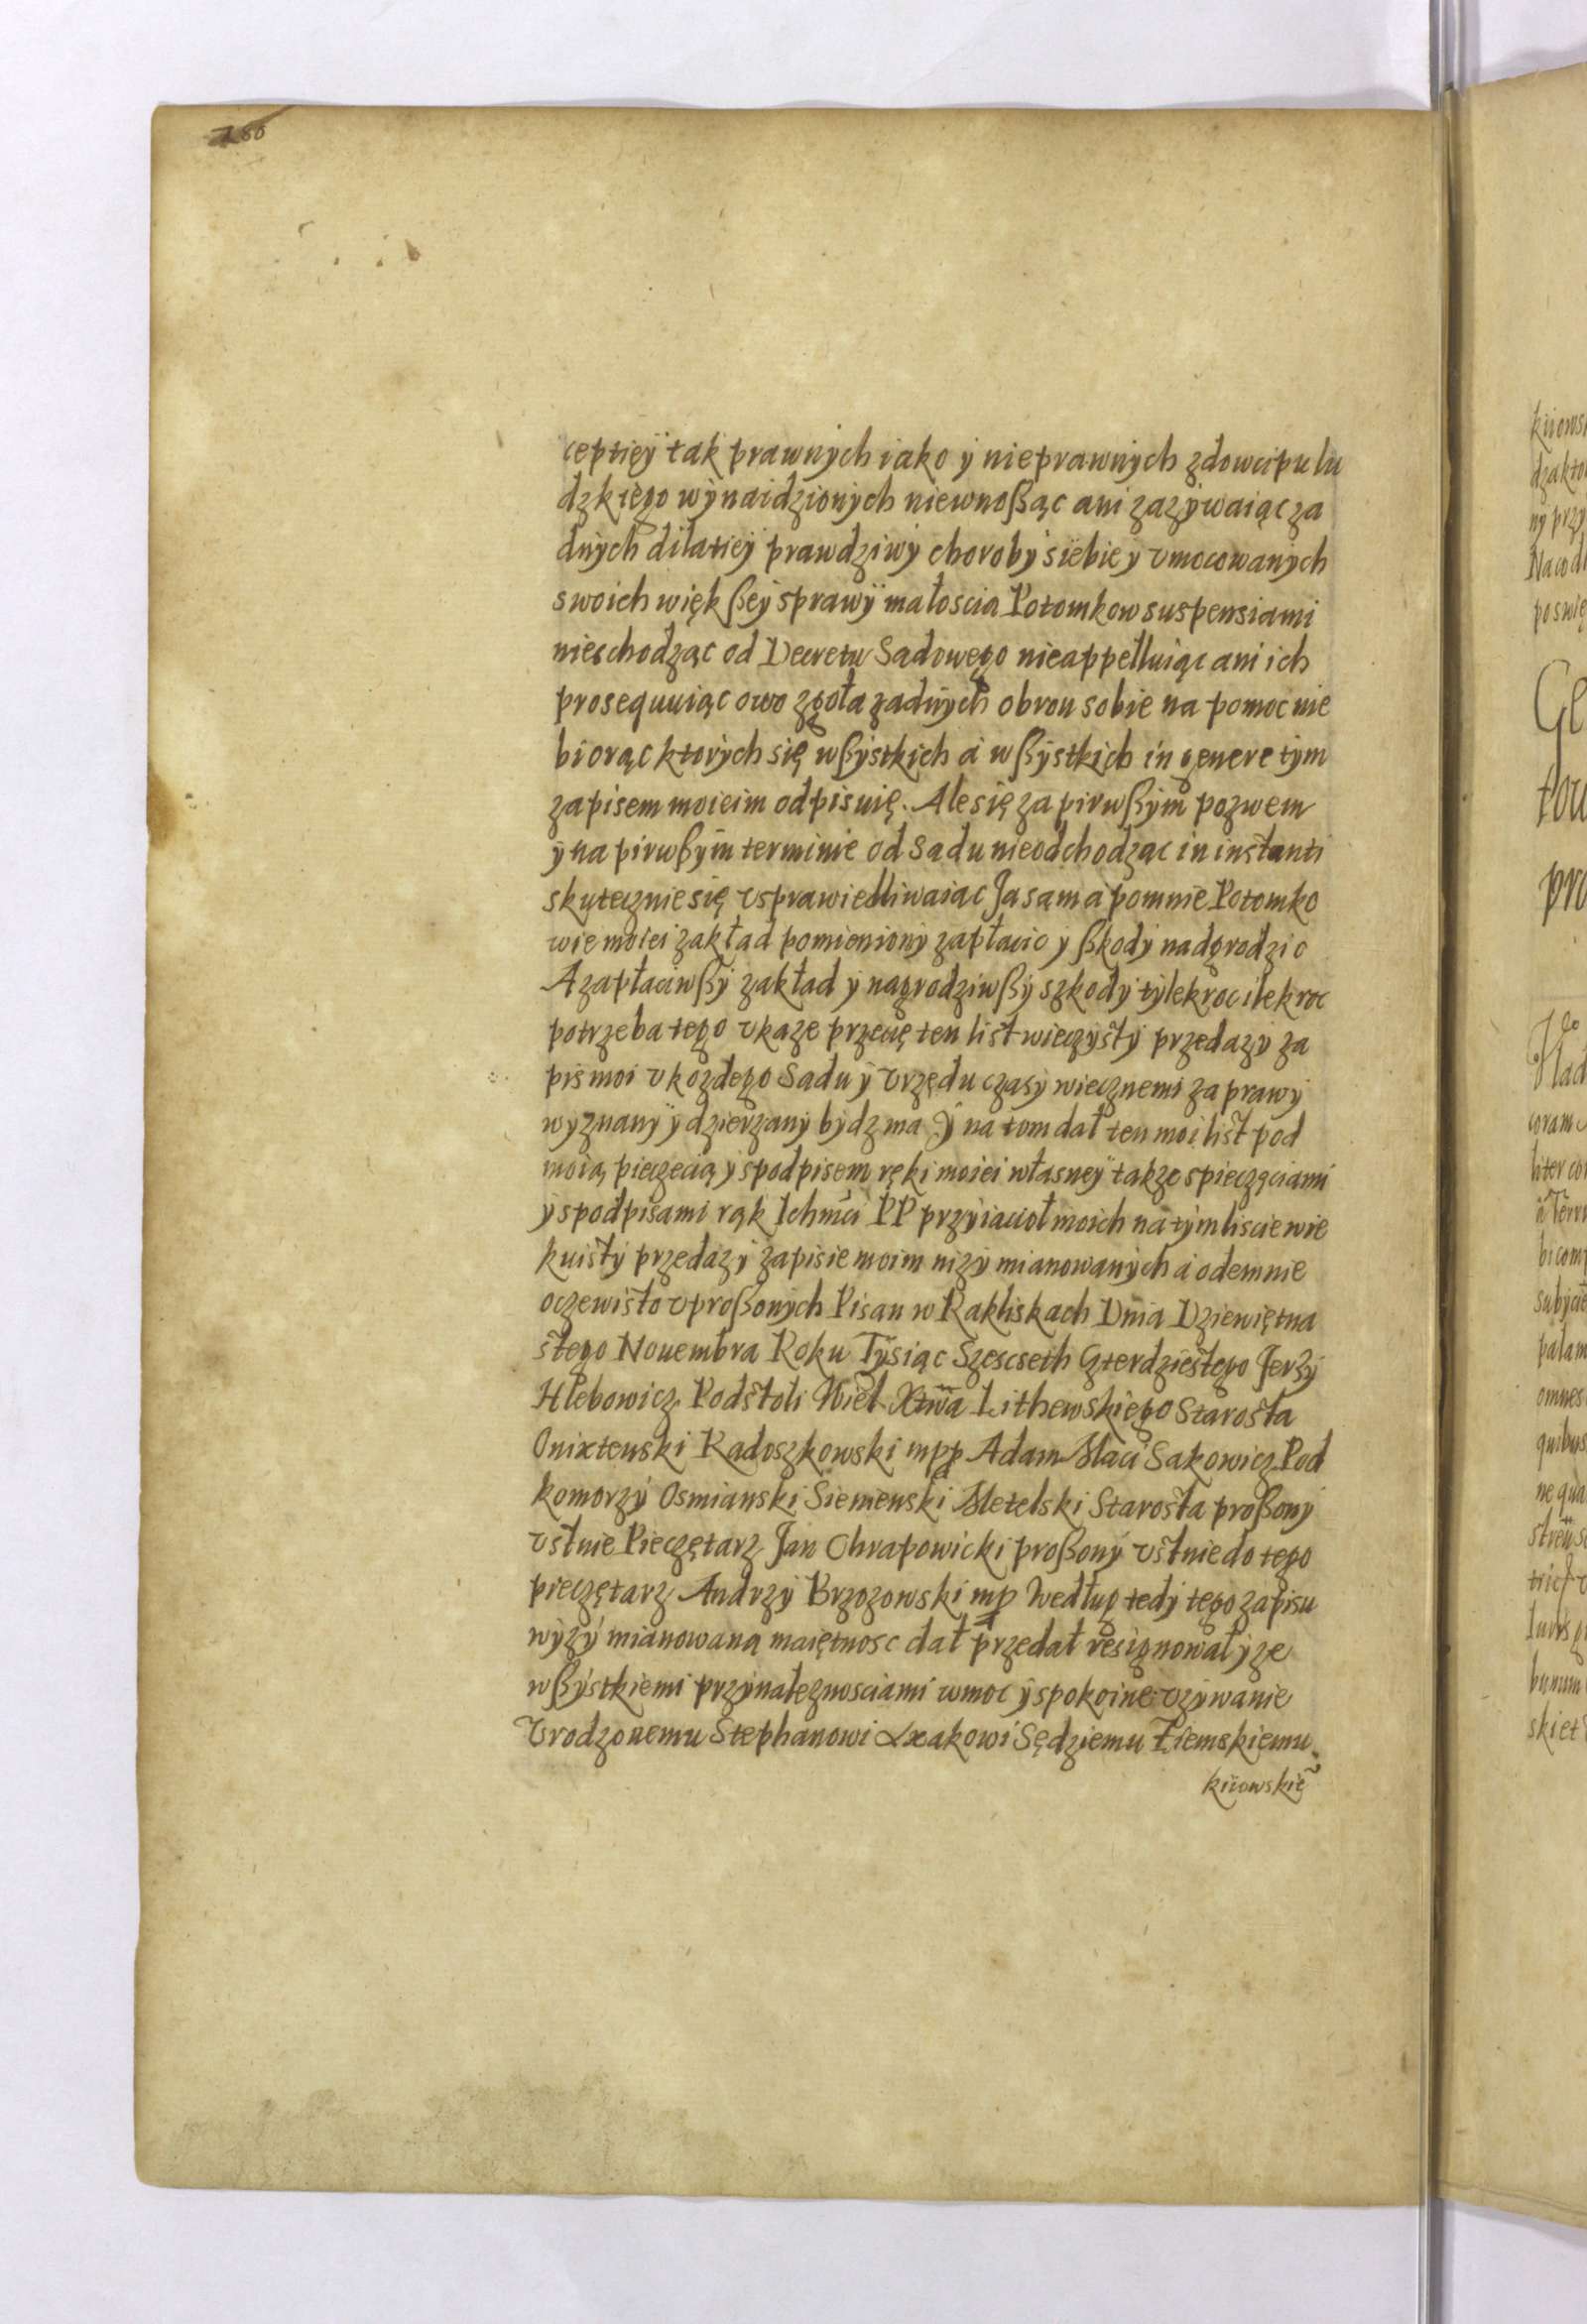 186
ceptięÿ tak prawnÿch iako ÿ nieprawnÿch zdowcipu lu
dzkiego wÿnaidzionÿch niewnoßąc ani zazÿwaiąc za
dnÿch dilatieÿ prawdziwÿ chorobÿ siebie ÿ vmocowanÿch
swoich więkßeÿ sprawÿ małoscia Potomkow suspensiami
nieschodząc od Decretu Sadowego nieappelluiąc ani ich
prosequuiąc owo zgoła zadnÿch obron sobie na pomoc nie
biorąc ktorÿch się wßÿstkich á wßÿstkich in genere tÿm
zapisem moieim odpisuię. Ale się za pirwßÿm pozwem
ÿ na pirwßÿm terminie od Sadu nieodchodząc in instanti
skutecznie się vsprawiedliwaiac Ja sam a pomnie Potomko
wie moiei zakład pomienionÿ zapłacic ÿ ßkodÿ nadgrodzic
A zapłaciwßÿ zakład ÿ nagrodziwßÿ szkodÿ tÿlekroc ilekroc
potrzeba tego vkaze przecię ten list wieczÿstÿ przedazÿ za
pis moi v kozdego Sadu ÿ Vrzędu czasÿ wiecznemi za prawÿ
wÿznanÿ ÿ dzierzanÿ bÿdz ma Ÿ na tom dał ten moi list pod
moią pieczecią ÿ spodpisem ręki moiei własneÿ takze spieczęciami
ÿ spodpisami rąk Ichmći PP przÿiaciołmoich na tÿm liscie wie
kuistÿ przedazÿ zapisie moim nizÿ mianowanÿch á odemnie
oczewisto vproßonÿch Pisan w Rakliskach Dnia Dziewiętna
stego Nouembra Roku Tÿsiąc Szescseth Czterdziestego Jerzÿ
Hlebowicz Podstoli Wiel Xtwa Lithewskiego Starosta
Onixtenski Radoszkowski mpp Adam Maci Sakowicz Pod
komorzÿ Osmianski Siemenski Metelski Starosta proßonÿ
vstnie Pieczętarz Jan Chrapowicki proßonÿ vstnie do tego
pieczętarz Andrzÿ Brzozowski mp Według tedÿ tego zapisu
wÿzÿ mianowaną maiętnosc dał przedał resignował ÿ ze
wßÿstkiemi przÿnaleznosciami wmoc ÿ spokoine vzÿwanie
Vrodzonemu Stephanowi Axakowi Sędziemu Ziemskiemu
kiiowskie˜